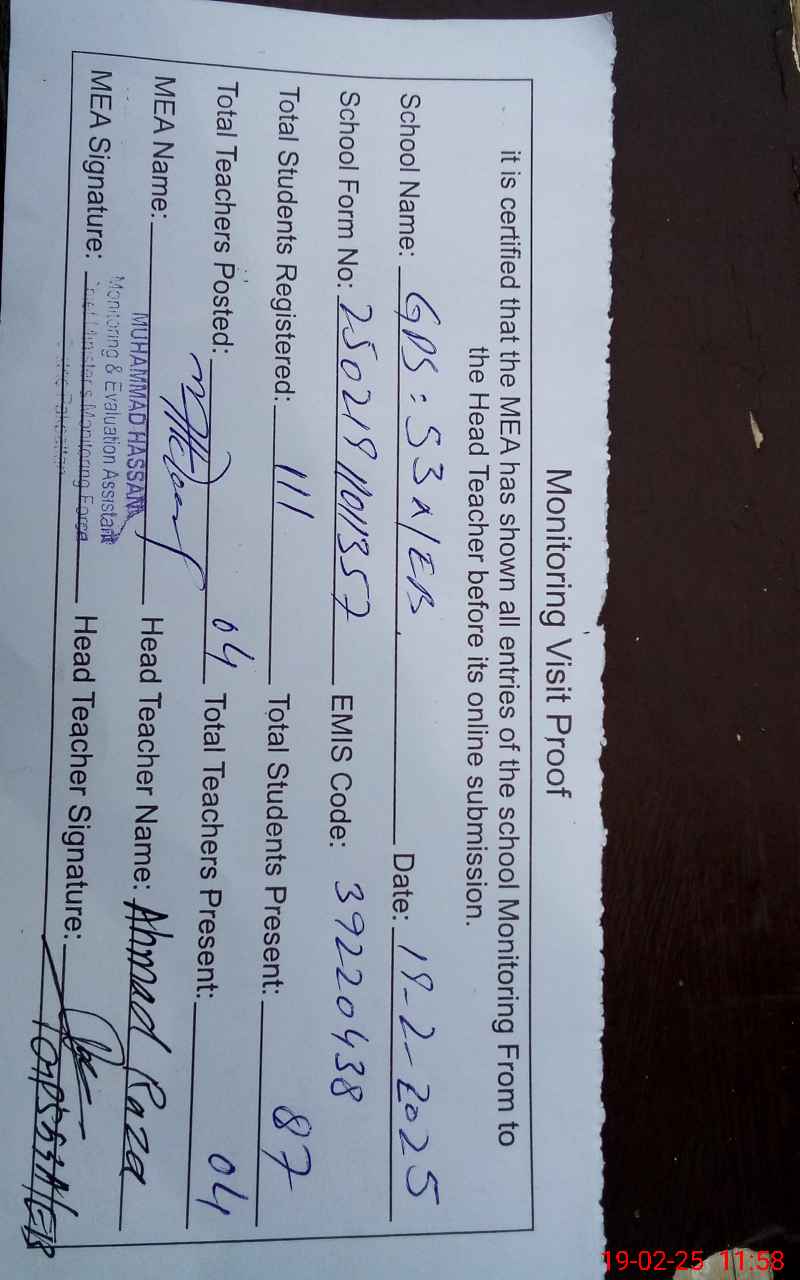 Monitoring Visit Proof
it is certified that the MEA has shown all entries of the school Monitoring From to
the Head Teacher before its online submission.
School Name: GPS: 53 A/EB Date: 19-2-2025
School Form No: 25021911011357 EMIS Code: 39220438
Total Students Registered: 111 Total Students Present: 87
Total Teachers Posted: 04 Total Teachers Present: 04
MEA Name: MUHAMMAD HASSAN Head Teacher Name: Ahmad Raza
Monitoring & Evaluation Assistant
MEA Signature: Chief Minister's Monitoring Force Head Teacher Signature:
19-02-25 11:58